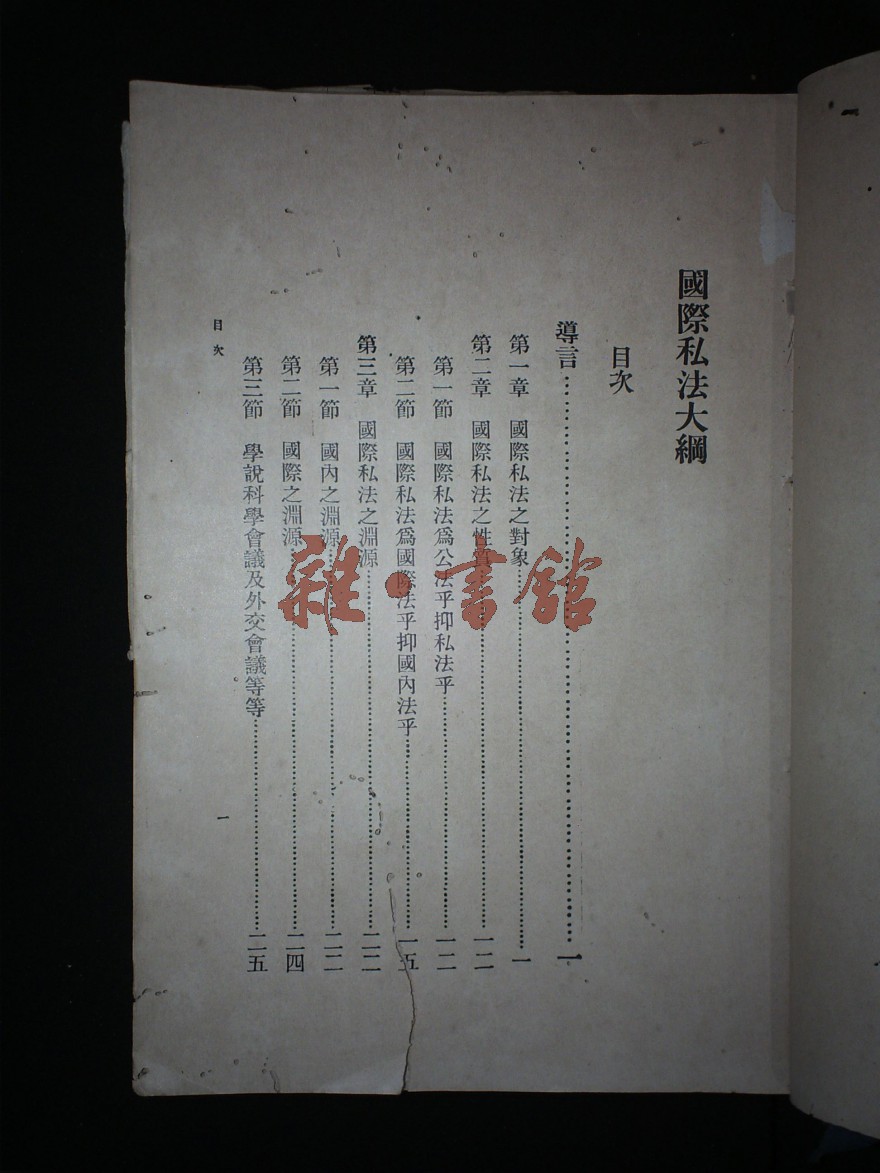 國際私法大綱
目次
導言……一
第一章 國際私法之對象……一
第二章 國際私法之性質……一二
第一節 國際私法爲公法乎抑私法乎……一二
第二節 國際私法爲國際法乎抑國內法乎……一五
第三章 國際私法之淵源……二二
第一節 國內之淵源……二二
第二節 國際之淵源……二四
第三節 學說科學會議及外交會議等等……二五
目次 一
雜·書館